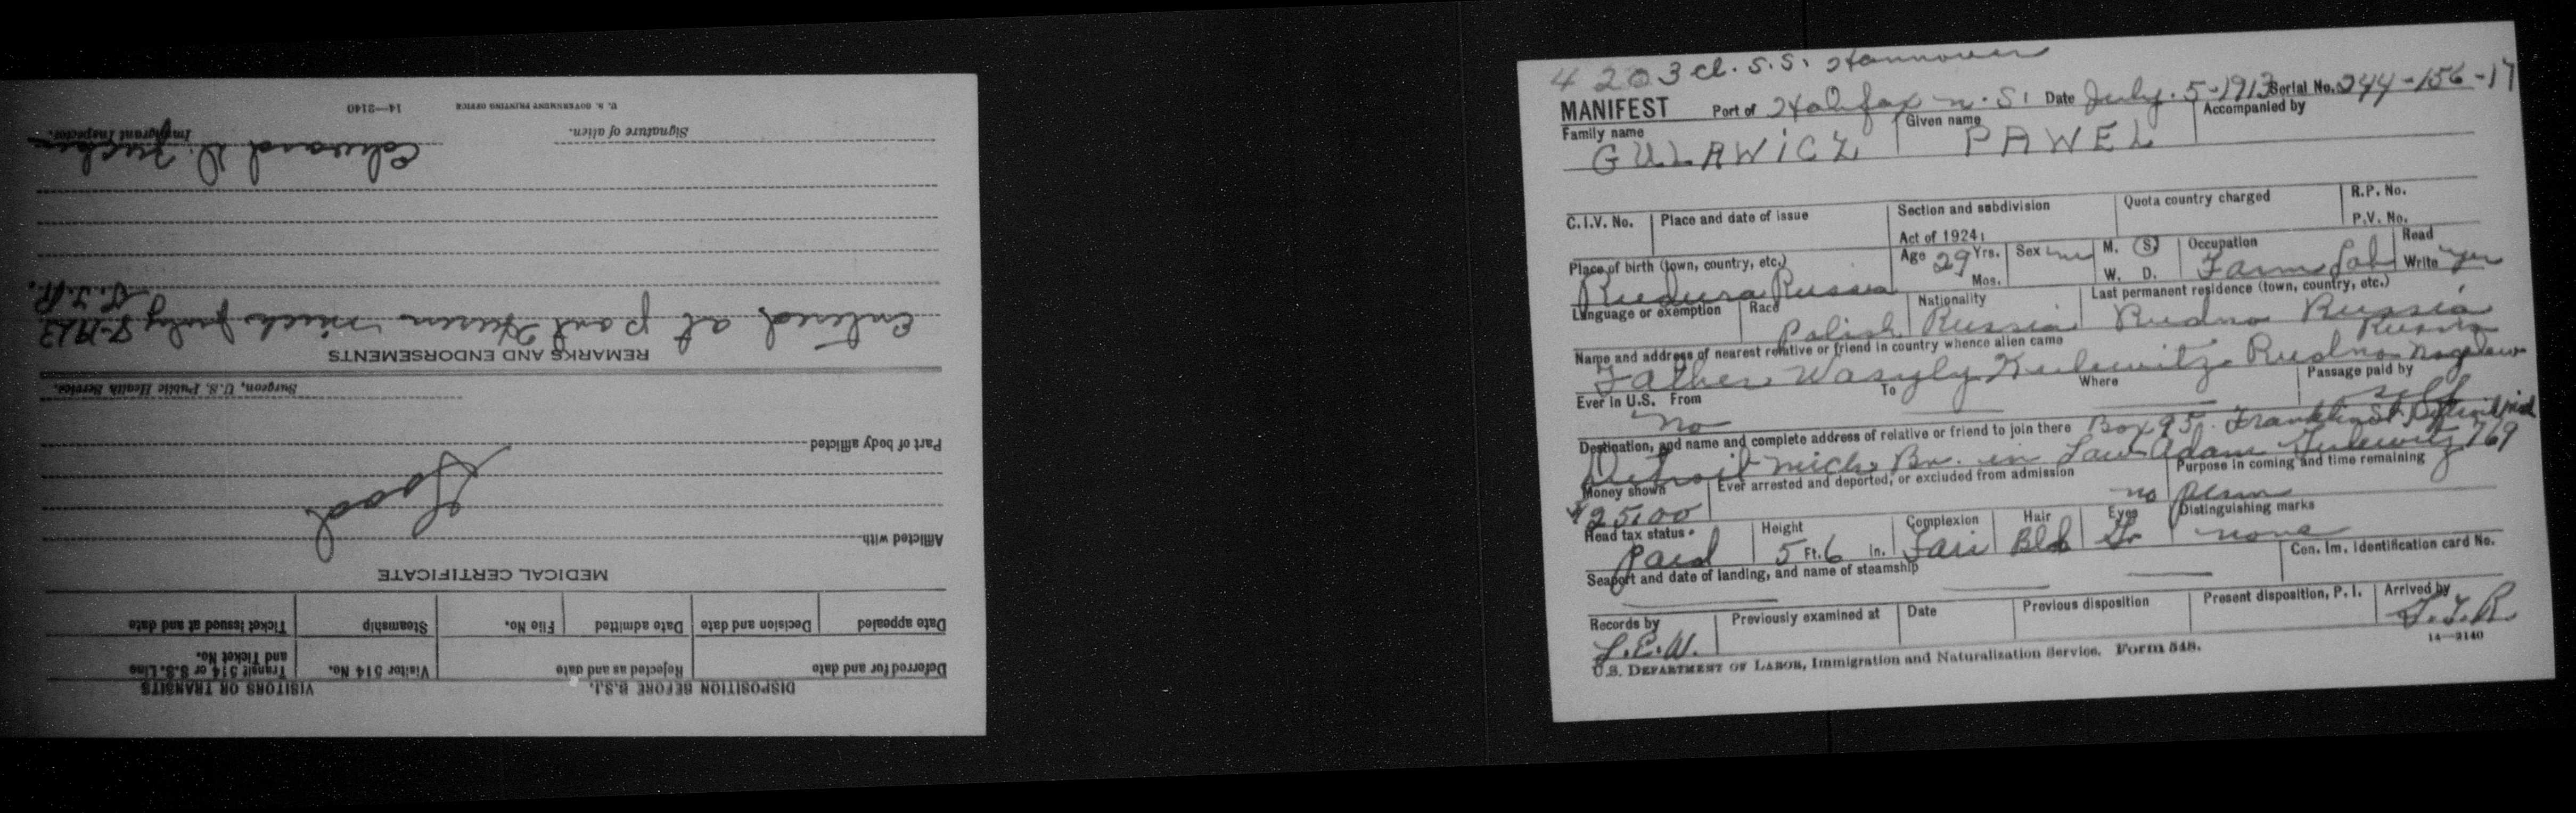 4203 cl. S.S. Hannover
MANIFEST Port of Halifax N.S. Date July 5-1913 Serial No. 244-156-17
Family name Given name Accompanied by
GULAWICZ PAWEL
C.I.V. No. Place and date of issue Section and subdivision Act of 1924: Quota country charged R.P. No. P.V. No.
Place of birth (town, country, etc.) Age 29 Yrs. Mos. Sex m M. S W. D. Occupation Farm Lab Read Write yes
Russia
Language or exemption Race Polish Nationality Russia Last permanent residence (town, country, etc.) Rudno Russia
Name and address of nearest relative or friend in country whence alien came Russia
Father Wasyly Kulewitz Rudno
Ever in U.S. From To Where Passage paid by
No self
Destination, and name and complete address of relative or friend to join there Box 95 Franklin St. Detroit Mich
Detroit Mich Br. in Law Adam 769
Money shown Ever arrested and deported, or excluded from admission Purpose in coming and time remaining
$25.00 no perm
Head tax status Height Complexion Hair Eyes Distinguishing marks
Paid 5 Ft. 6 in. Fair Bld Gr none
Seaport and date of landing, and name of steamship Can. Im. Identification card No.
Records by Previously examined at Date Previous disposition Present disposition, P. I. Arrived by
L.E.W.
14—2140
U.S. DEPARTMENT OF LABOR, Immigration and Naturalization Service. Form 548.
DISPOSITION BEFORE B.S.I. VISITORS OR TRANSITS
Deferred for and date Rejected as and date Visitor 514 No. Transit 514 or S.S. Line and Ticket No.
Date appealed Decision and date Date admitted File No. Steamship Ticket issued at and date
MEDICAL CERTIFICATE
Afflicted with
Good
Part of body afflicted
Surgeon, U.S. Public Health Service.
REMARKS AND ENDORSEMENTS
Entered at port Huron mich July 8-1913
Edward D.
Signature of alien. Immigrant Inspector.
U. S. GOVERNMENT PRINTING OFFICE 14—2140